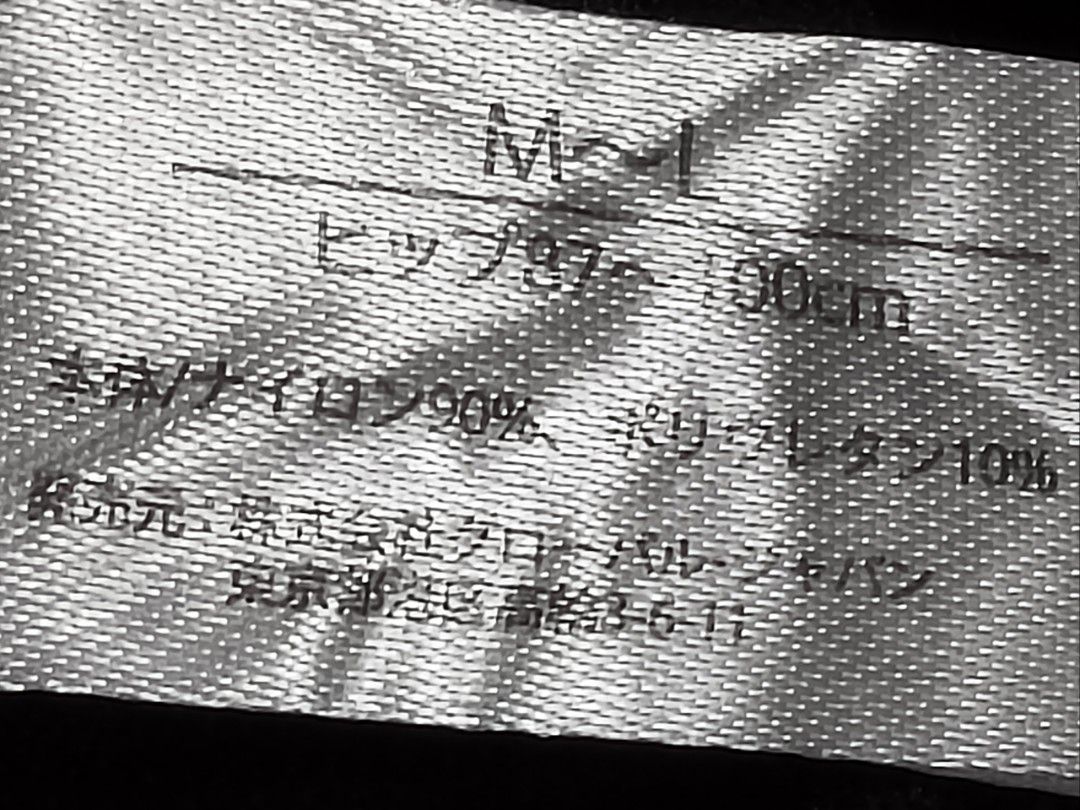 M～L
ヒップ87～100cm
本体/ナイロン90%、 ポリウレタン10%
発売元：株式会社グローバル・ジャパン
東京都港区高輪3-6-11